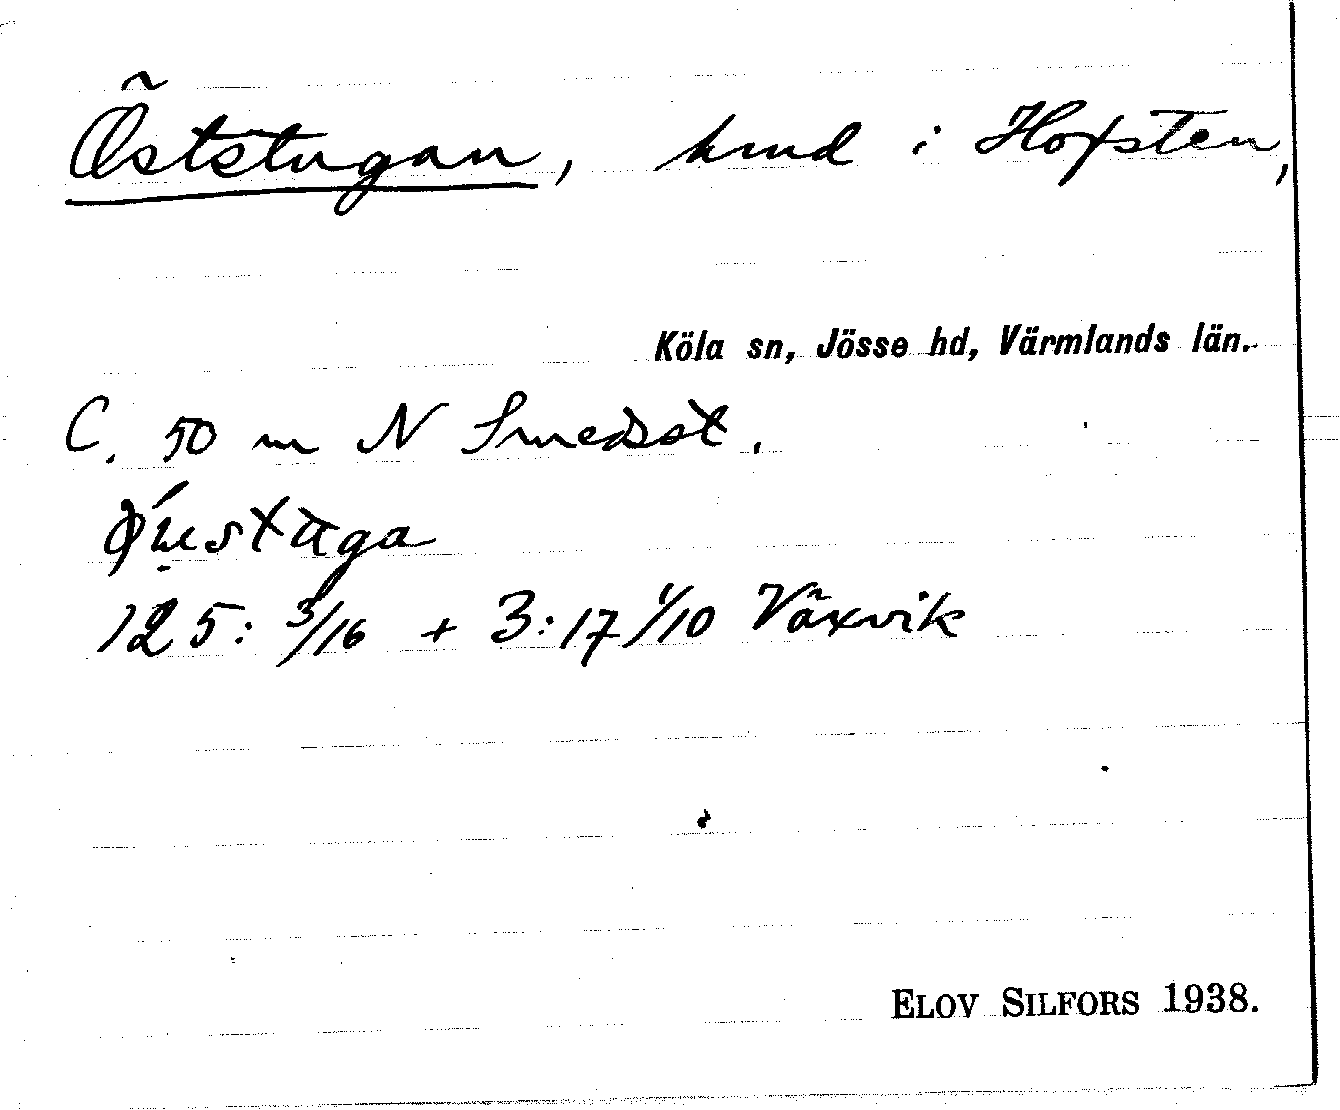 Öststugan, hmd i Hofsten,
Köla sn, Jösse hd, Värmlands län.
C. 50 m N Smedst.
125: 3/16 + 3:17 1/10 Växvik
ELOV SILFORS 1938.